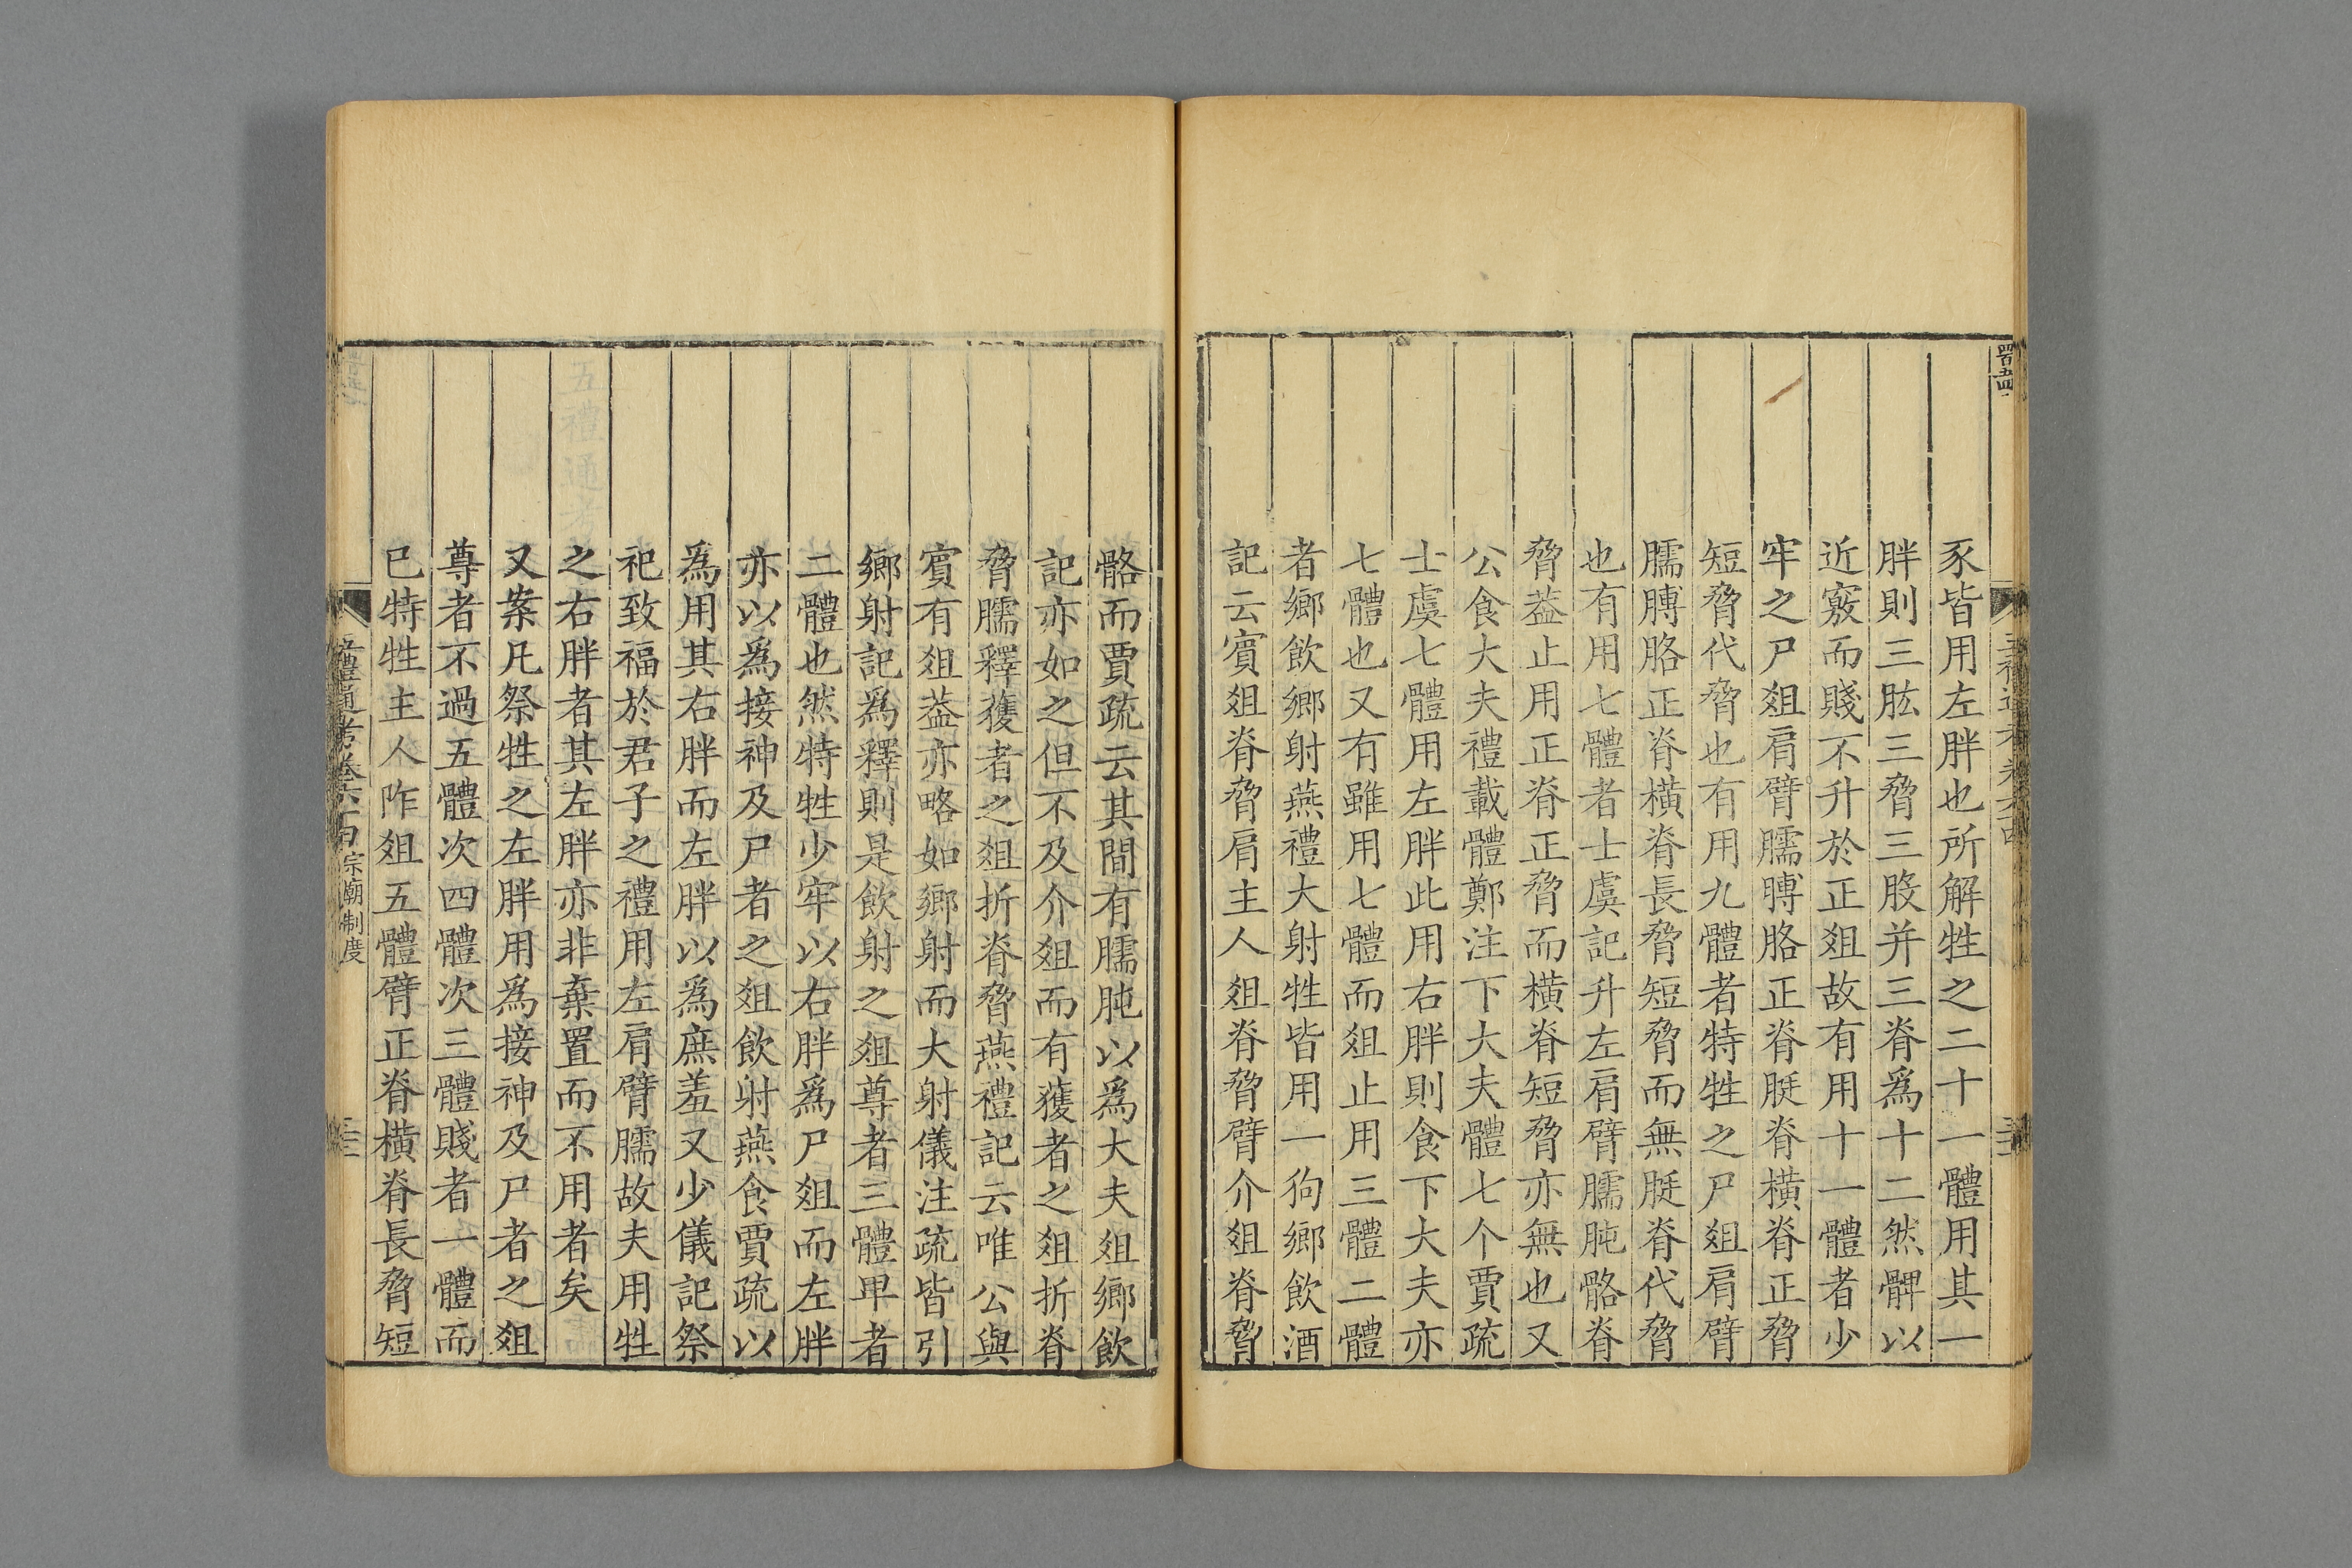 豕皆用左胖也所解牲之二十一體用其一
胖則三肱三脅三股并三脊爲十二然髀以
近竅而賤不升於正俎故有用十一體者少
牢之尸俎肩臂臑膊胳正脊脡脊橫脊正脅
短脅代脅也有用九體者特牲之尸俎肩臂
臑膊胳正脊橫脊長脅短脅而無脡脊代脅
也有用七體者士虞記升左肩臂臑肫骼脊
脅葢止用正脊正脅而橫脊短脅亦無也又
公食大夫禮載體鄭注下大夫體七个賈疏
士虞七體用左胖此用右胖則食下大夫亦
七體也又有雖用七體而俎止用三體二體
者鄉飲鄉射燕禮大射牲皆用一狗鄉飲酒
記云賓俎脊脅肩主人俎脊脅臂介俎脊脅
骼而賈疏云其間有臑肫以爲大夫俎鄉飲
記亦如之但不及介俎而有獲者之俎折脊
脅臑釋獲者之俎折脊脅燕禮記云唯公與
賓有俎葢亦略如鄉射而大射儀注疏皆引
鄉射記爲釋則是飲射之俎尊者三體卑者
二體也然特牲少牢以右胖爲尸俎而左胖
亦以爲接神及尸者之俎飲射燕食賈疏以
爲用其右胖而左胖以爲庶羞又少儀記祭
祀致福於君子之禮用左肩臂臑故夫用牲
之右胖者其左胖亦非棄置而不用者矣
又案凡祭牲之左胖用爲接神及尸者之俎
尊者不過五體次四體次三體賤者一體而
已特牲主人阼俎五體臂正脊橫脊長脅短
五禮通考卷六百 宗廟制度